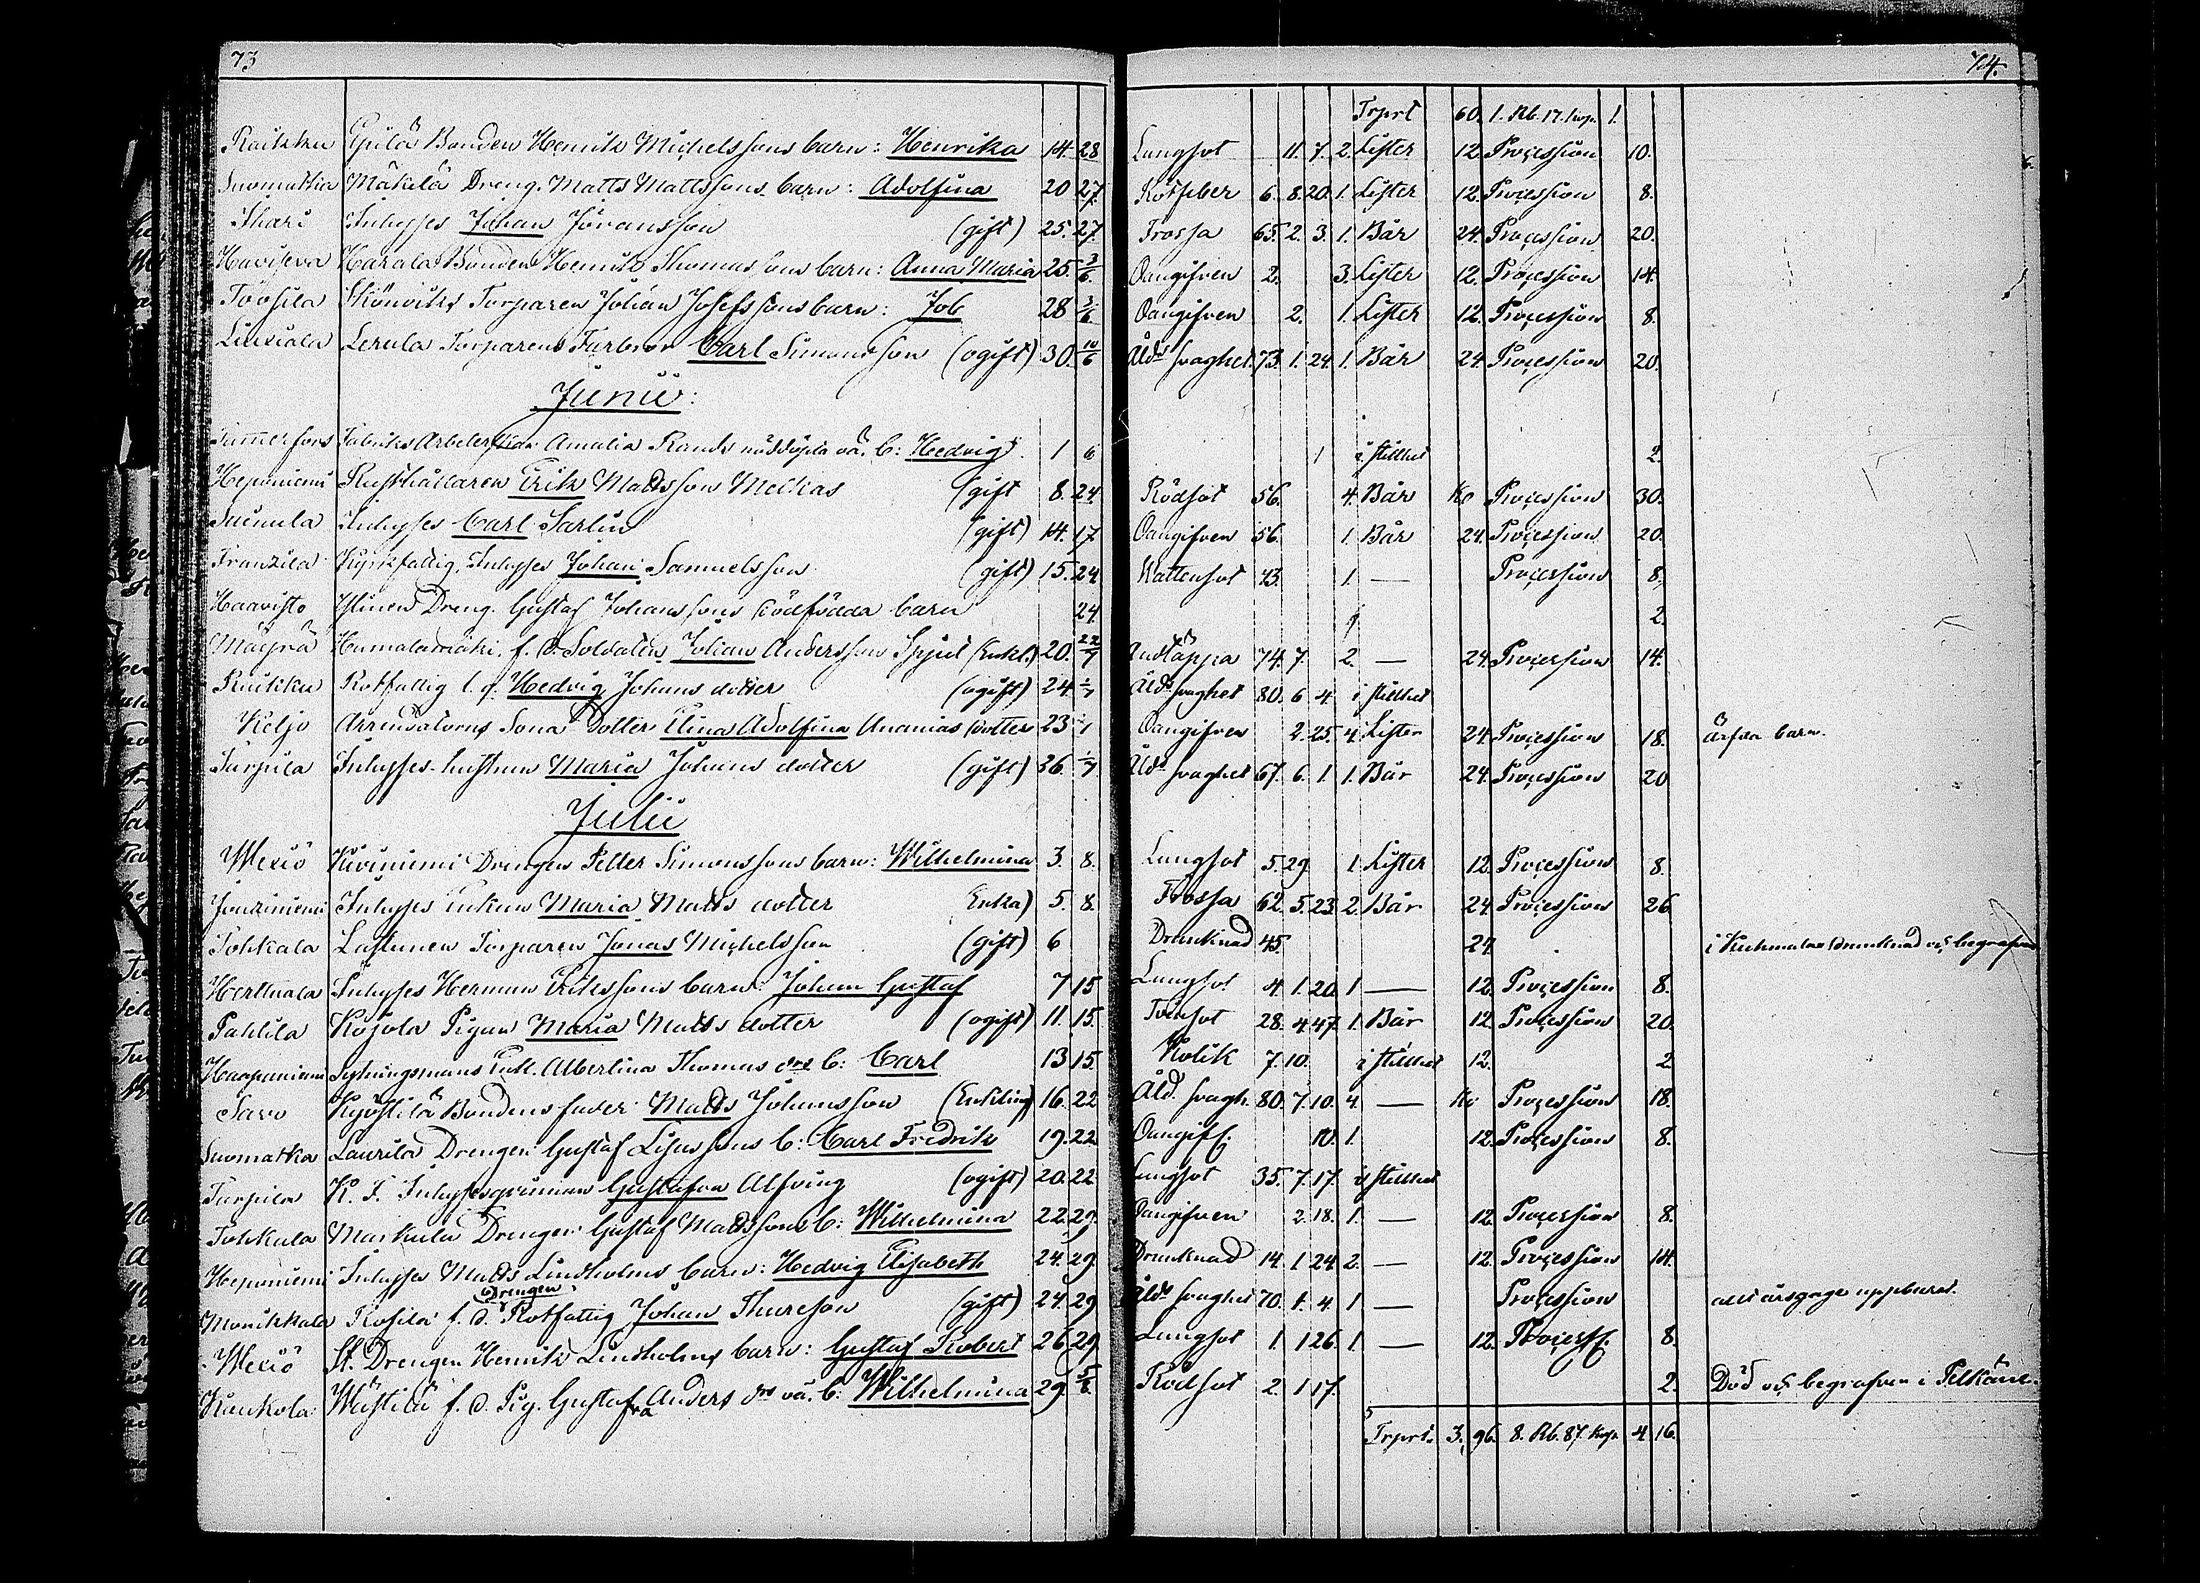 73 74.
Trprt 60. 1. Rb. 17. kop. 1.
Raikku Ylilä Bonden Henrik Michelssons barn: Henrika 14. 28 Lungsot 11. 7. 2. Lister 12. Procession 10.
Suomatka Mäkilä Dreng. Matts Mattssons barn: Adolfina 20 27. Rötfeber 6. 8. 20. 1. Lister 12. Procession 8.
Inhyses Johan Göransson (gift) 25. 27. Frossa 65. 2. 3. 1. Bår 24. Procession 20.
Haviseva Harala Bonden Henrik Thomassons barn: Anna Maria 25. 3/6. Oangifven 2. 3. Lister 12. Procession 14.
Torparen Johan Josefssons barn: Job 28 3/6 Oangifven 2. 1. Lister 12. Procession 8.
Liuksiala Lerula Torparens Farbror Carl Simonsson (ogift) 30. 10/6 Åld. svaghet. 73. 1. 24. 1. Bår 24. Procession 20.
Junii:
Tammerfors Fabriks Arbeterskan Amalia Rands oä. b: Hedvig 1 6 1 i stillhet 2.
Heponiemi Rusthållaren Erik Mattsson Melkas (gift 8. 24 Rödsot 56. 4. Bår Ko Procession 30.
Suinula Inhyses Carl Sarlin (gift) 14. 17 Oangifven 56. 1. Bår 24. Procession 20.
Franzila Kyrkfattig, Inhyses Johan Samuelsson (gift) 15. 24 Wattensot 43. 1. — Procession 8.
Haavisto Ylinen Dreng. Gustaf Johanssons dödfödda barn 24. 2.
Mäyrä Humalamäki, f. d. Soldaten Johan Andersson Spjut (Enkl.) 20. 22/7 Andtäppa 74. 7. 2. — 24. Procession 14.
Raikku Rotfattig l. q. Hedvig Johans dotter (ogift) 24 1/7 Åld. svaghet 80. 6 4. i stillhet
Keljo Arrendatorns Sona dotter Elina Adolfina Ananias dotter 23 1/7 Oangifven 2. 25. 4. Lister 24. Procession 18. barn.
Tarpila Inhyses-hustrun Maria Johans dotter (gift) 26. 1/7 Åld. svaghet 67. 6. 1. 1. Bår 24. Procession 20
Julii
Wexiö Kiviniemi Drengen Petter Simonssons barn: Wilhelmina 3. 8. Lungsot 5. 29. 1. Lister 12. Procession 8.
Inhyses Enkan Maria Matts dotter Enka) 5. 8. Frossa 62. 5. 23. 2. Bår 24. Procession 26.
Tohkala Lastunen Torparen Jonas Michelsson (gift) 6 Drunknad 45. 24. i Kuhmalax drunknad och begrafven
Herttuala Inhyses Herman Erikssons barn: Johan Gustaf 7 15 Lungsot 4. 1. 20. 1 — 12. Procession 8.
Pahlila Kojola Pigan Maria Matts dotter (ogift) 11. 15. Tvinsot 28. 4. 17. 1. Bår 12. Procession 20.
Haapaniemi Sytningsmans Enk. Albertina Thomas drs b: Carl 13 15. Kolik 7. 10. i stillhet 12. 2
Savo Kyöstilä Bondens fader Matts Johansson (Enkling) 16. 22 Åld. svagh. 80. 7. 10. 4. — Ko Procession 18.
Suomatka Laurila Drengen Gustaf b: Carl Fredrik 19. 22 Oangif. 10. 1. 12. Procession 8.
Tarpila Gustafva Alfving (ogift) 20. 22 Lungsot 35. 7. 17. i stillhet
Tohkala Markula Drengen Gustaf Mattssons b: Wilhelmina 22. 29. Oangifven 2. 18. 1. — 12. Procession 8.
Heponiemi Inhyses Matts Lindholms barn: Hedvig Elisabeth 24. 29. Drunknad 14. 1. 24. 2. — 12. Procession 14.
Monikkala Kosila f. d. Drengen Rotfattig Johan Thureson (gift) 24. 29 Åld. svaghet 70. 1. 4. 1 — Procession årsgage uppburet.
Wexiö St. Drengen Henrik Lindholms barn: Gustaf Robert 26. 29. Lungsot 1. 1 26. 1. — 12. Process. 8.
Kaukola Wästilä f. d. Pig. Gustafva Anders drs oä. b: Wilhelmina 29. 5/8. Rödsot 2. 1 17. 2. Död och begrafven i Pelkäne.
Trprt. 3. 96. 8. Rb. 87. kop. 4 16.